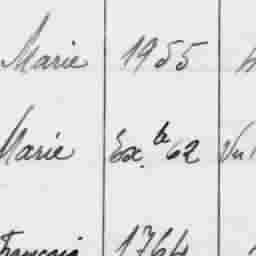 Marie 1955
Marie Ex. te 62 Vu
François 1764